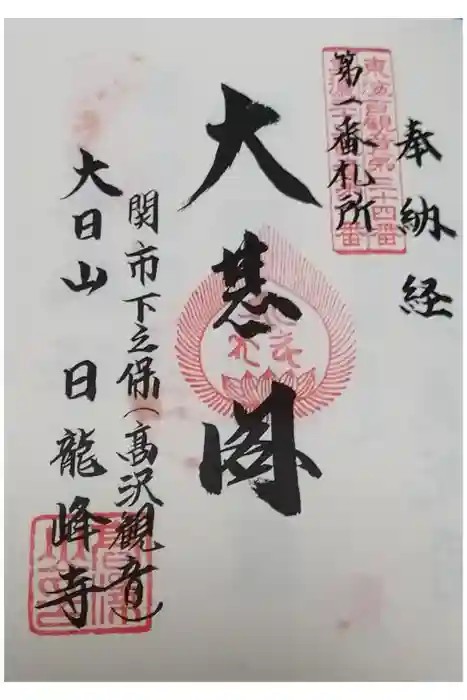 奉納経
東海百観音第三十四番
第一番札所
大悲閣
関市下之保(高沢観音)
大日山 日龍峰寺